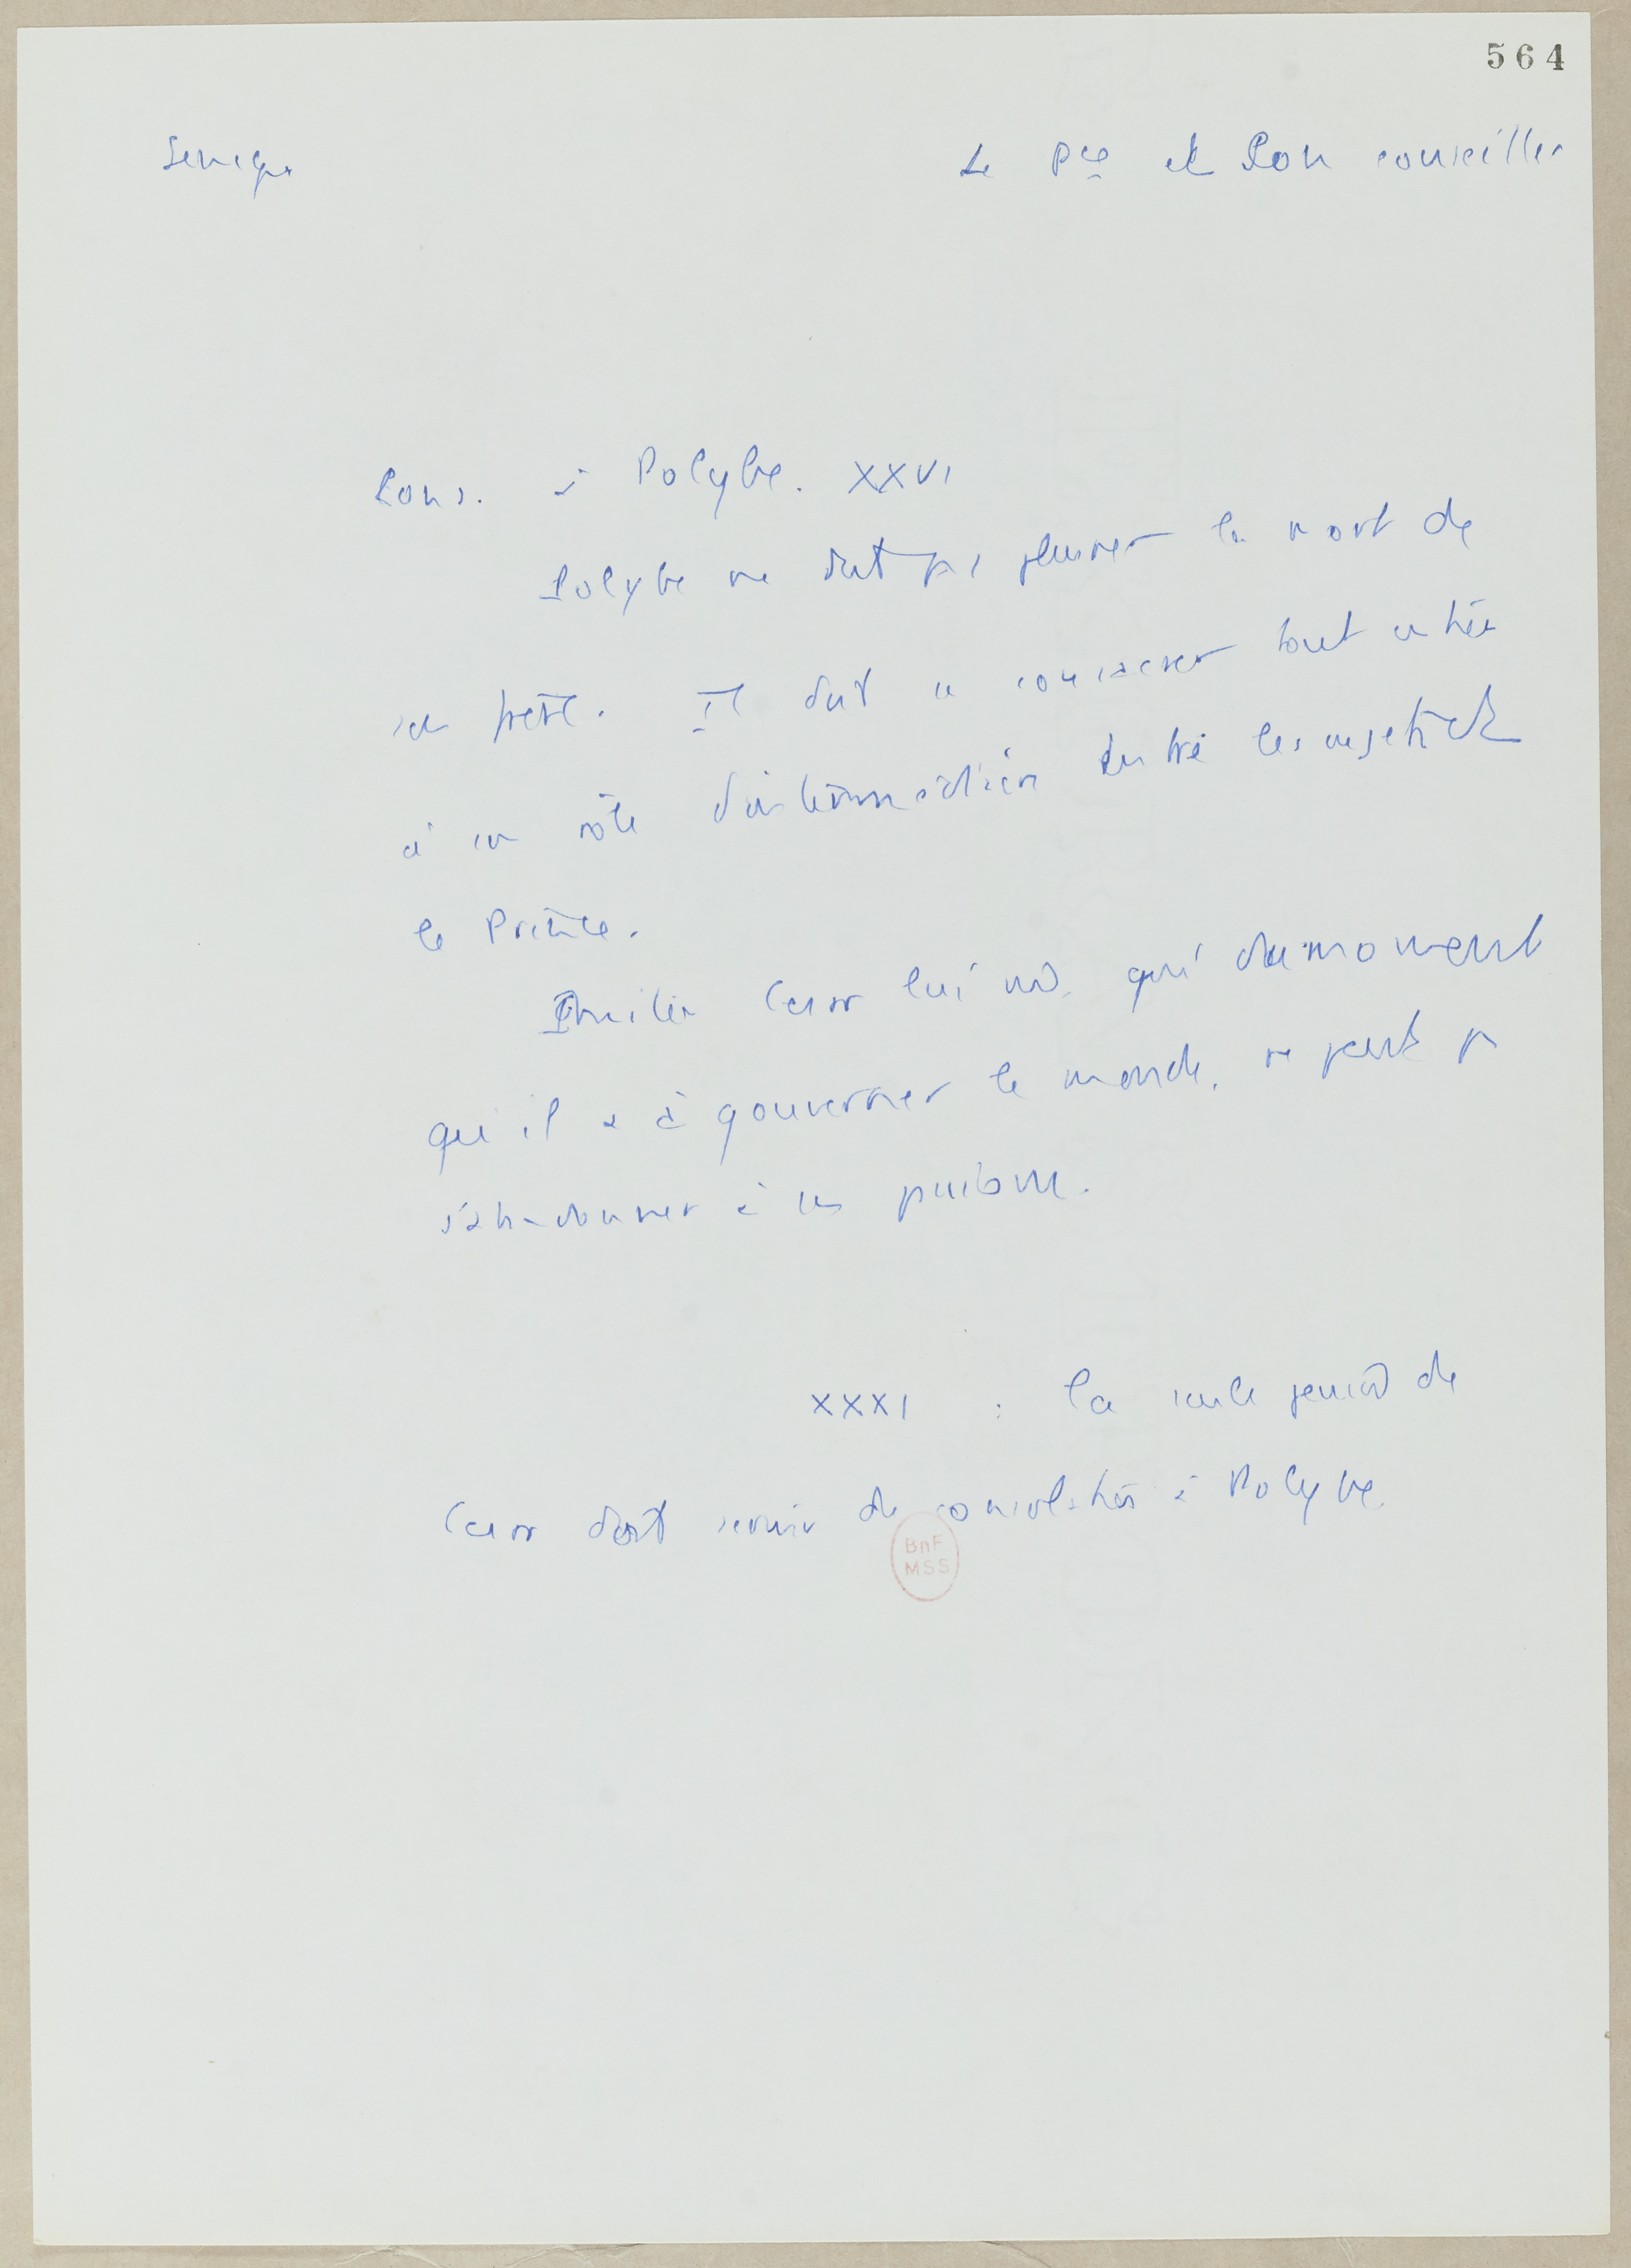 564
Seneque
Le Pce et son conseiller
Cons. à Polybe. XXVI
Polybe ne doit pas pleurer la mort de
son frère. Il doit se consacrer tout entier
à son rôle d'intermédiaire entre les sujets et
le Prince.
Imiter Cesar lui m̂, qui du moment
qu'il a à gouverner le monde, ne peut ps
s'abandonner à ses passions.
XXXI : la seule pensée de
Cesar doit servir de consolation à Polybe.
BnF
MSS